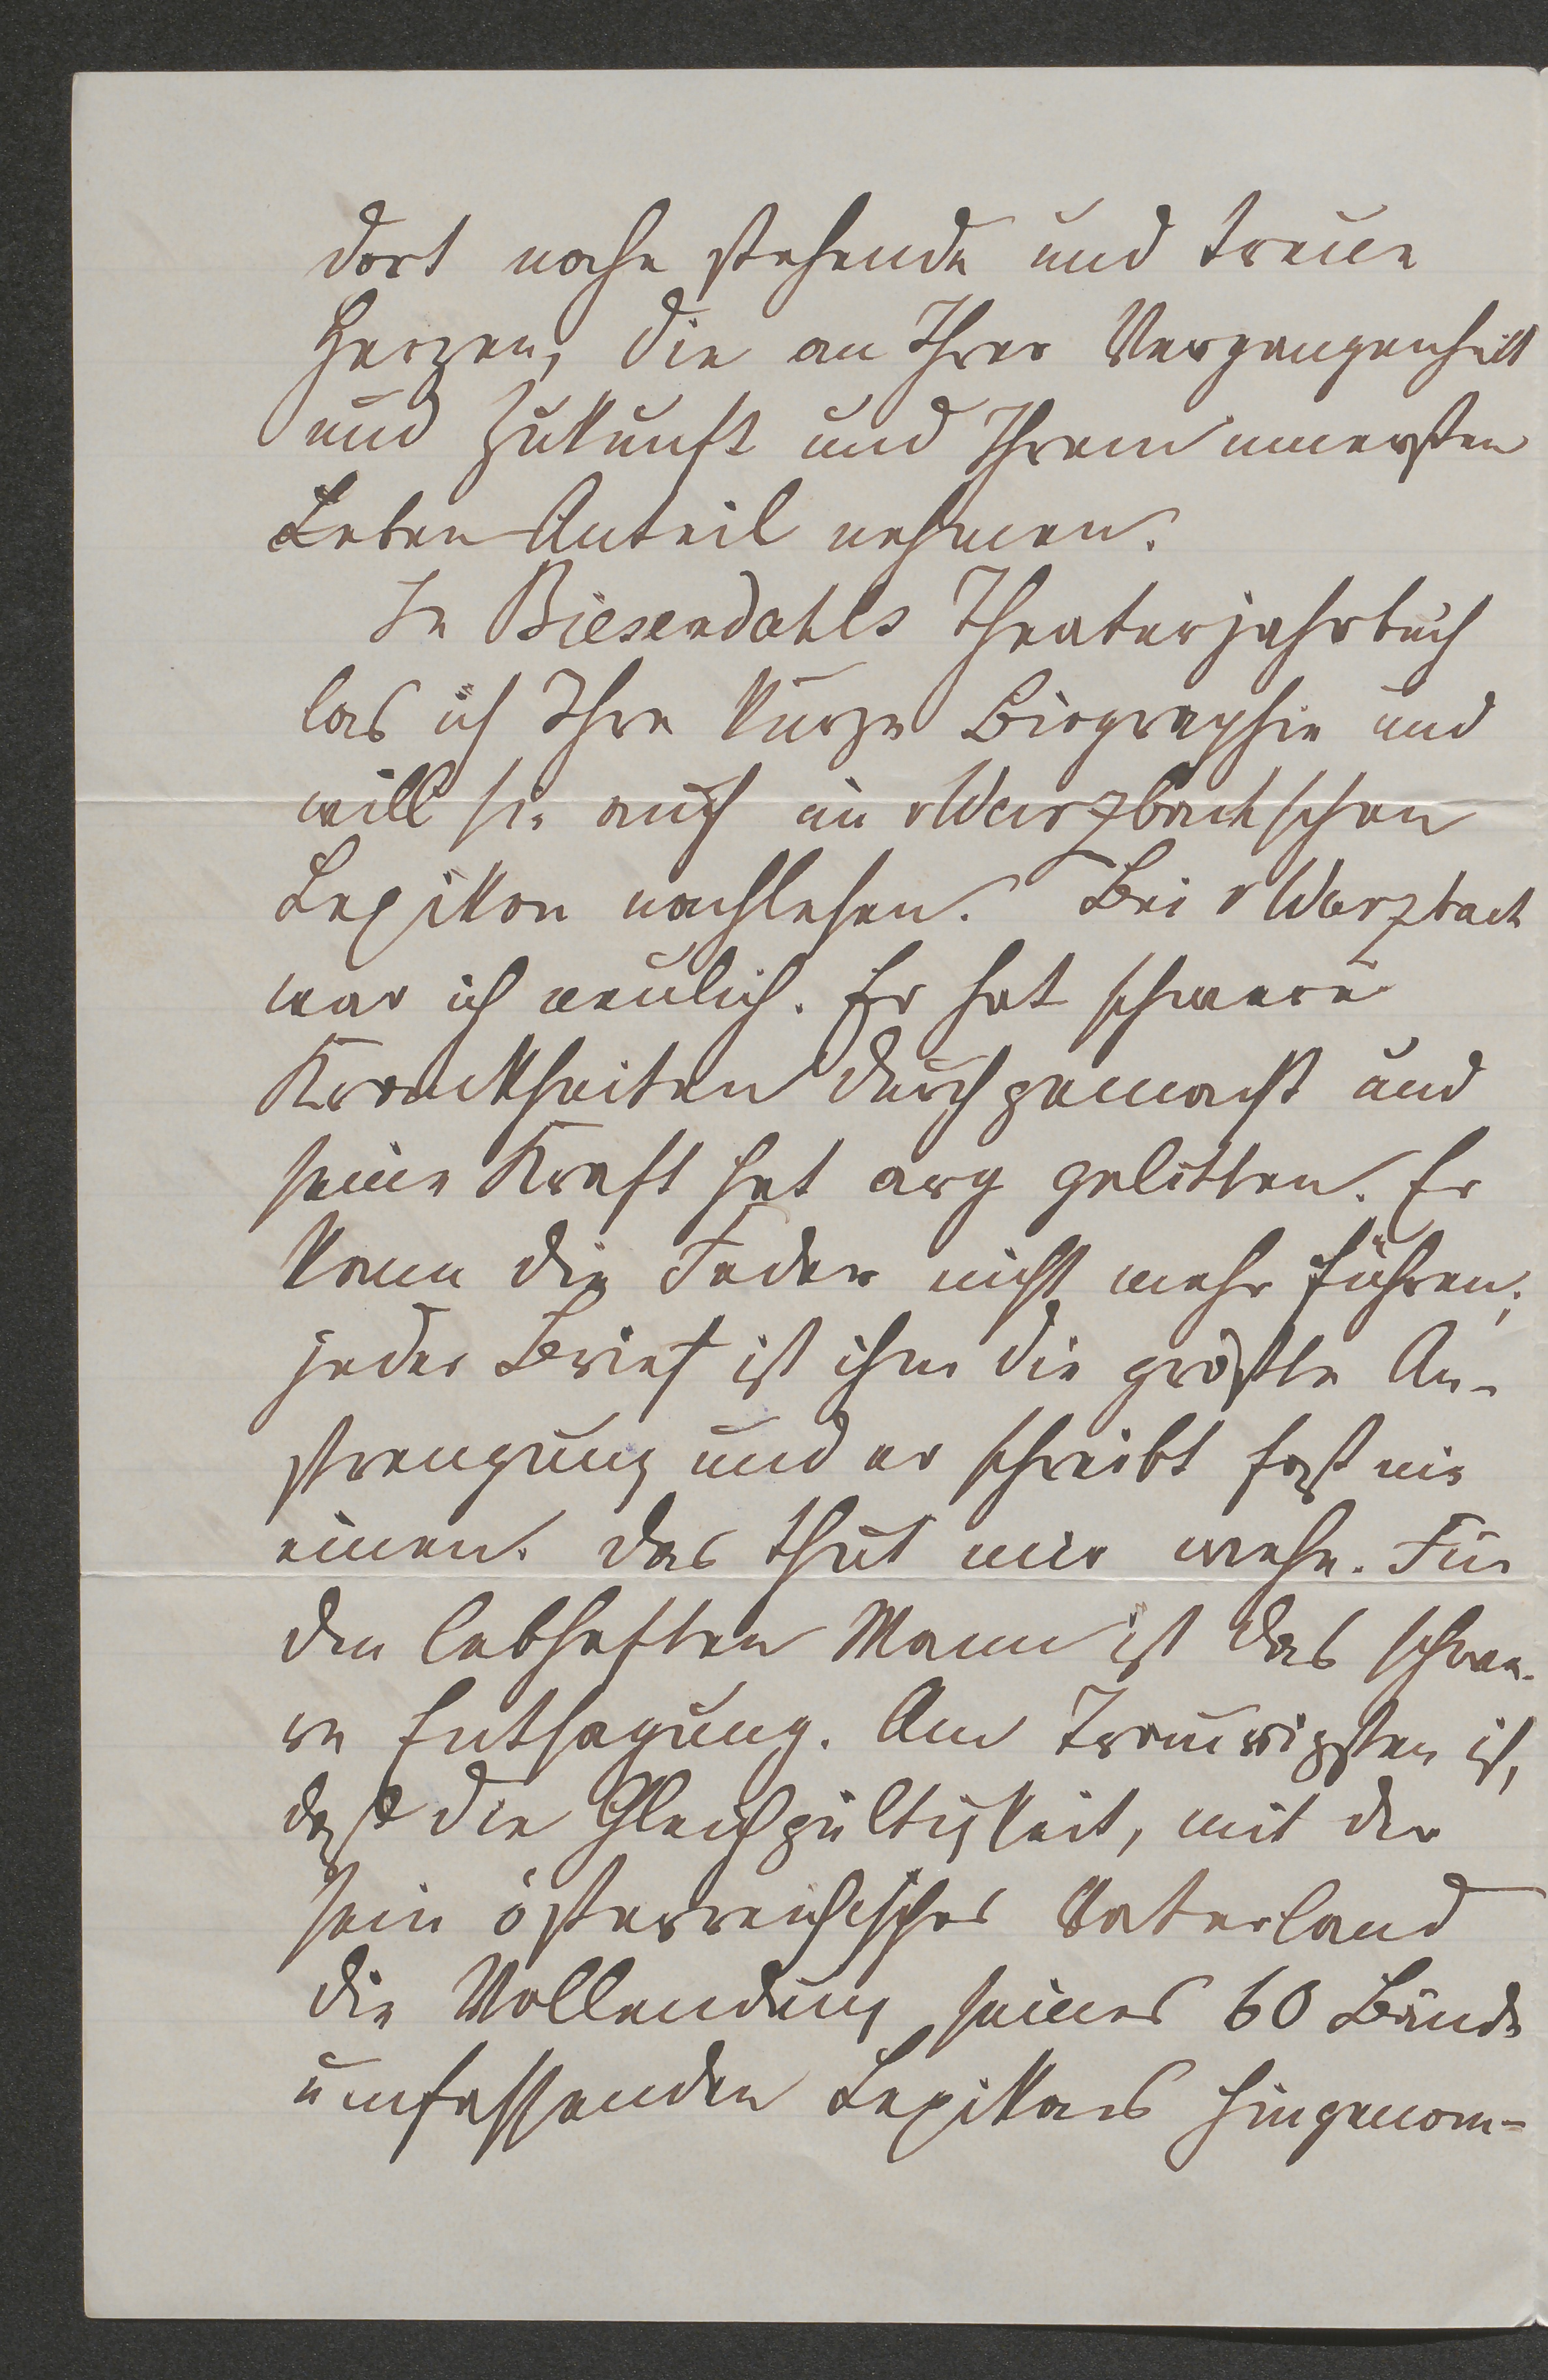 dort nahe stehende und treue
Herzen, die an Ihrer Vergangenheit
und Zukunft und Ihrem innersten
Leben Anteil nehmen.
In Biesendahls Theaterjahrbuch
las ich Ihre kurze Biographie und
will sie auch im v Wurzbachschen
Lexikon nachlesen. Bei v Wurzbach
war ich neulich. Er hat schwere
Krankheiten durchgemacht und
seine Kraft hat arg gelitten. Er
kann die Feder nicht mehr führen;
jeder Brief ist ihm die größte An-
strengung und er schreibt fast nie
einen. Das thut mir wehe. Für
den lebhaften Mann ist das schwe-
re Entsagung. Am Traurigsten ist,
daß die Gleichgültigkeit, mit der
sein österreichisches Vaterland
die Vollendung seines 60 Bände
umfassenden Lexikons hingenom-